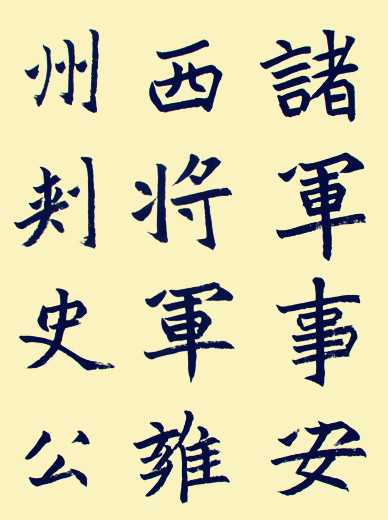 諸軍事安
西将軍雍
州刺史公